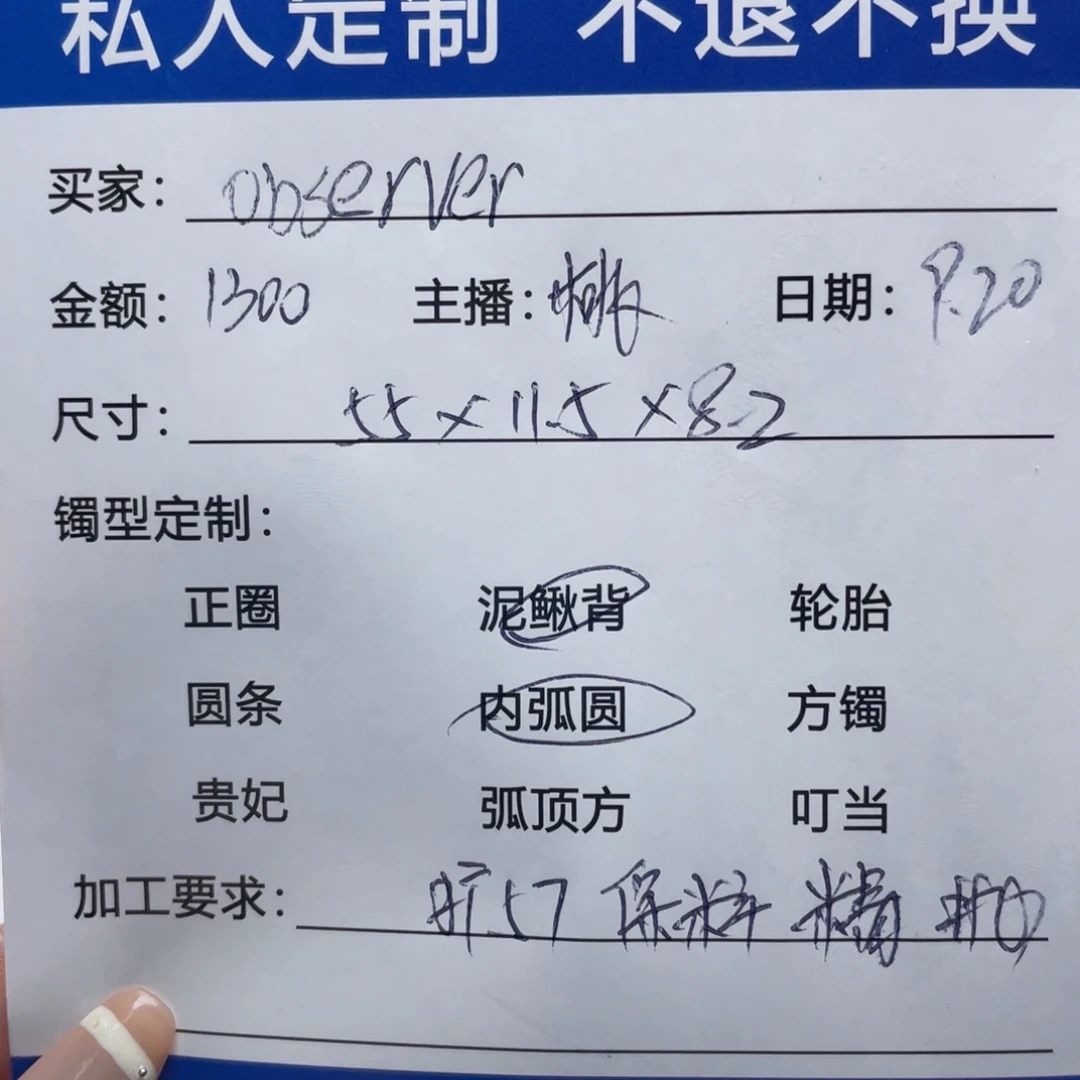 私人定制 不退不换
买家: observer
金额: 1300 主播: 日期: 9.20
尺寸: 55×11.5×8.2
镯型定制:
正圈 泥鳅背 轮胎
圆条 内弧圆 方镯
贵妃 弧顶方 叮当
加工要求: 57 保料 精抛